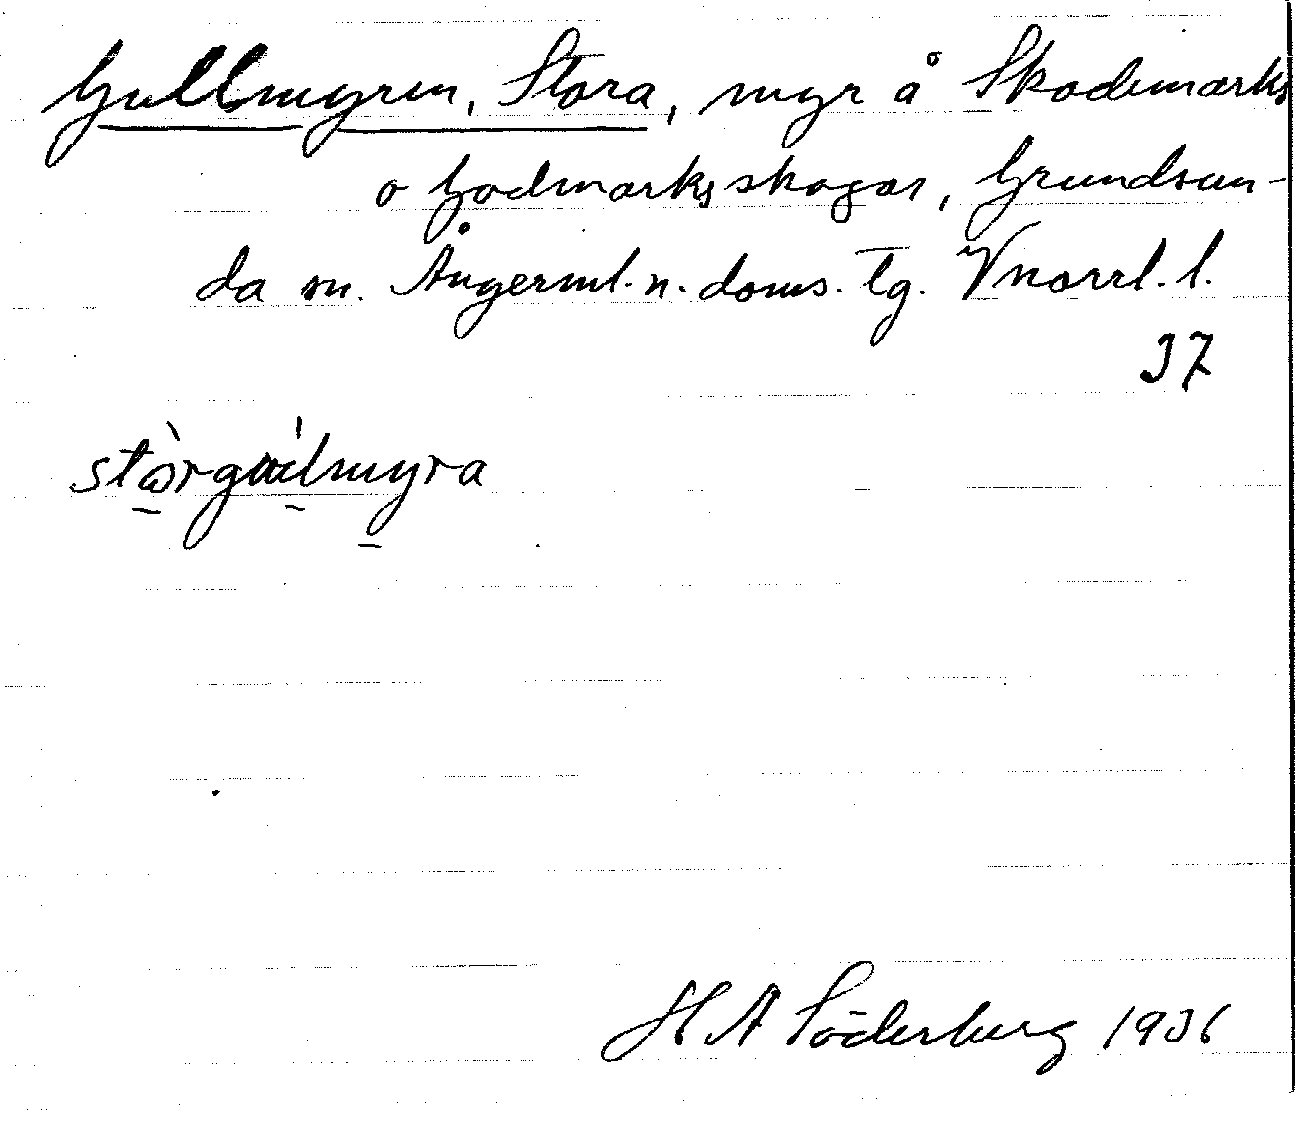 Gullmyren, Stora, myr å Skademarks
o Godmarksskogar, Grundsun-
da sn. Ångerml. n. doms. tg. Vnorrl. l.
37
stòrgúlmyra
H A Söderberg 1936